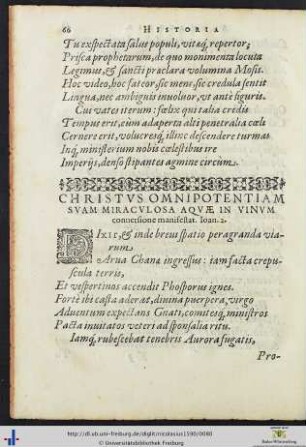 66 HISTORIA
Tu exspectata salus populi, vitaq, repertor;
Prisca prophetarum, de quo monimenta locuta
Legimus, & sancti præclara volumina Mosis.
Hoc video, hoc fateor, sic mens, sic credula sentit
Lingua, nec ambiguis inuoluor, vt ante figuris.
Cui vates iterum: fœlix qui talia credis
Tempus erit, cùm adaperta alti penetralia cœli
Cernere erit, volucresq, illinc descendere turmas
Inq, ministerium nobis cœlestibus ire
Imperijs, denso stipantes agmine circùm.
CHRISTVS OMNIPOTENTIAM
SVAM MIRACVLOSA AQVÆ IN VINVM
conuersione manifestat. Ioan. 2.
DIxit, & inde breui spatio peragranda via-
rum
Arua Chana ingressus: iam facta crepu-
scula terris,
Et vespertinos accendit Phosporus ignes.
Forte ibi casta aderat, diuina puerpera, virgo
Aduentum expectans Gnati, comitesq, ministros
Pacta inuitatos veteri ad sponsalia ritu.
Iamq, rubescebat tenebris Aurora fugatis,
Pro-
http://dl.ub.uni-freiburg.de/diglit/nicolaiius1590/0080
© Universitätsbibliothek Freiburg
Baden-Württemberg